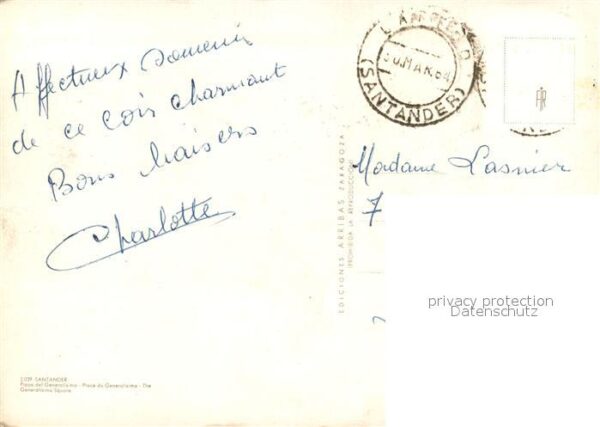 Affectueux souvenir
de ce coin charmant
Bons baisers
Charlotte
30.MAR.64
(SANTANDER)
Madame Lasnier
7
EDICIONES ARRIBAS ZARAGOZA
(PROHIBIDA LA REPRODUCCION)
privacy protection
Datenschutz
SANTANDER
Plaza del Generalísimo - Place du Generalisimo - The
Generalisimo Square